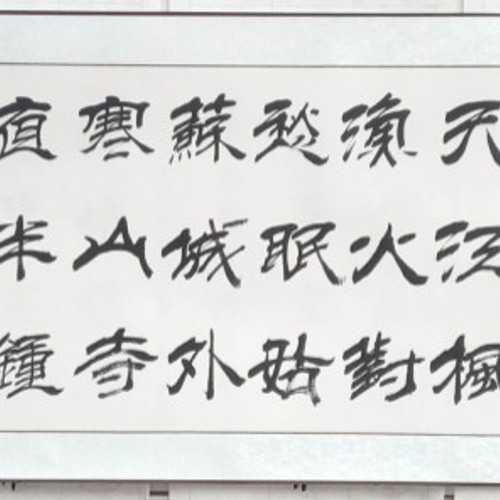 天江楓
漁火對
愁眠姑
蘇城外
寒山寺
亱半鐘